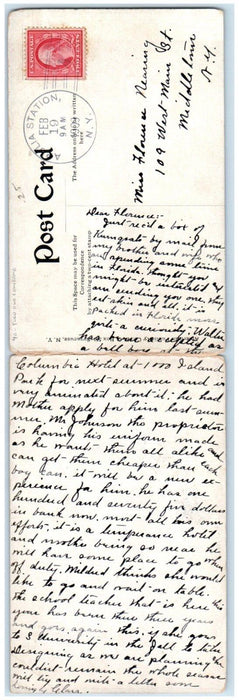 U.S. POSTAGE
STATION,
FEB
19
9 AM
N.Y.
Post Card
The Address only to be written here
This Space may be used for
Correspondence
by attaching a two-cent stamp
25
Miss Florence Nearing
109 West Main St.
Middletown
N.Y.
Dear Florence:-
Just rec'd a box of
Kumquats by mail from
my brother and wife who
are spending some time
in Florida. Thought you
might be interested &
am sending you one, they
eat skin and all, it is
packed in Florida moss,
quite a curiosity. Walter
has been accepted as
a bell boy at the
Columbia Hotel at 1000 Island
Park for next summer and is
very animated about it. he had
Mother apply for him last sum-
mer. Mr. Johnson the proprietor
is having his uniform made
as he wants them all alike and
can get them cheaper than each
boy can. it will be a new ex-
perience for him. he has one
hundred and seventy five dollars
in bank now. most all his own
efforts. it is a temperance hotel
and mother being so near he
will have some place to go when
off duty. Mildred thinks she would
like to go and wait on table.
the school teacher that is here this
year has been there three years
and goes again this. if she goes
to S University in the fall to take
Designing as we are planning she
couldn't remain the whole season
will try and write a letter soon
Clara.